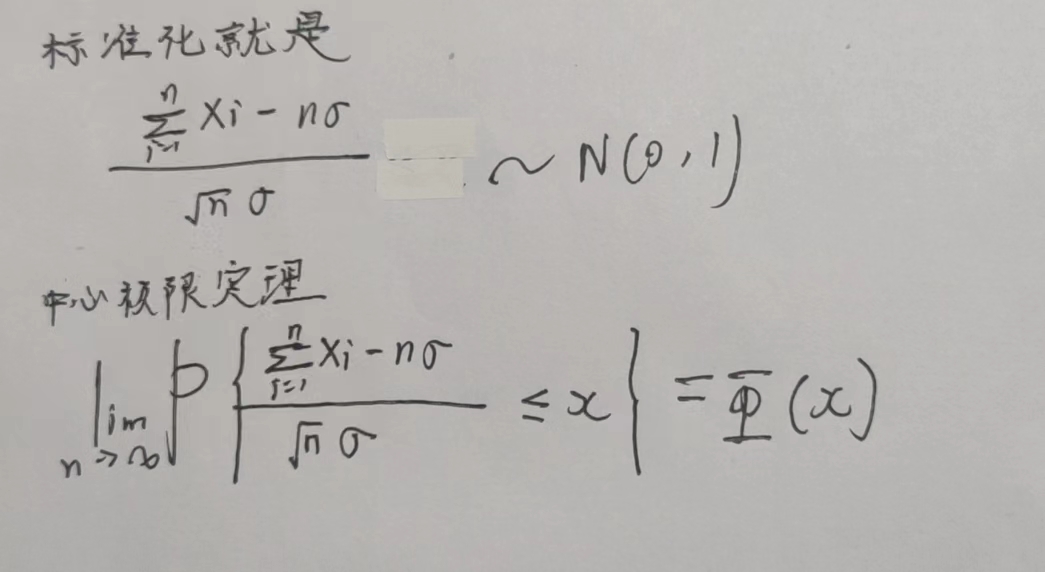 标准化就是
\frac{\sum_{i=1}^{n} Xi - nσ}{\sqrt{n} σ} ~ N(0,1)
中心极限定理
\lim_{n→∞} P\left\{ \frac{\sum_{i=1}^{n} Xi - nσ}{\sqrt{n} σ} ≤ x \right\} = Φ(x)